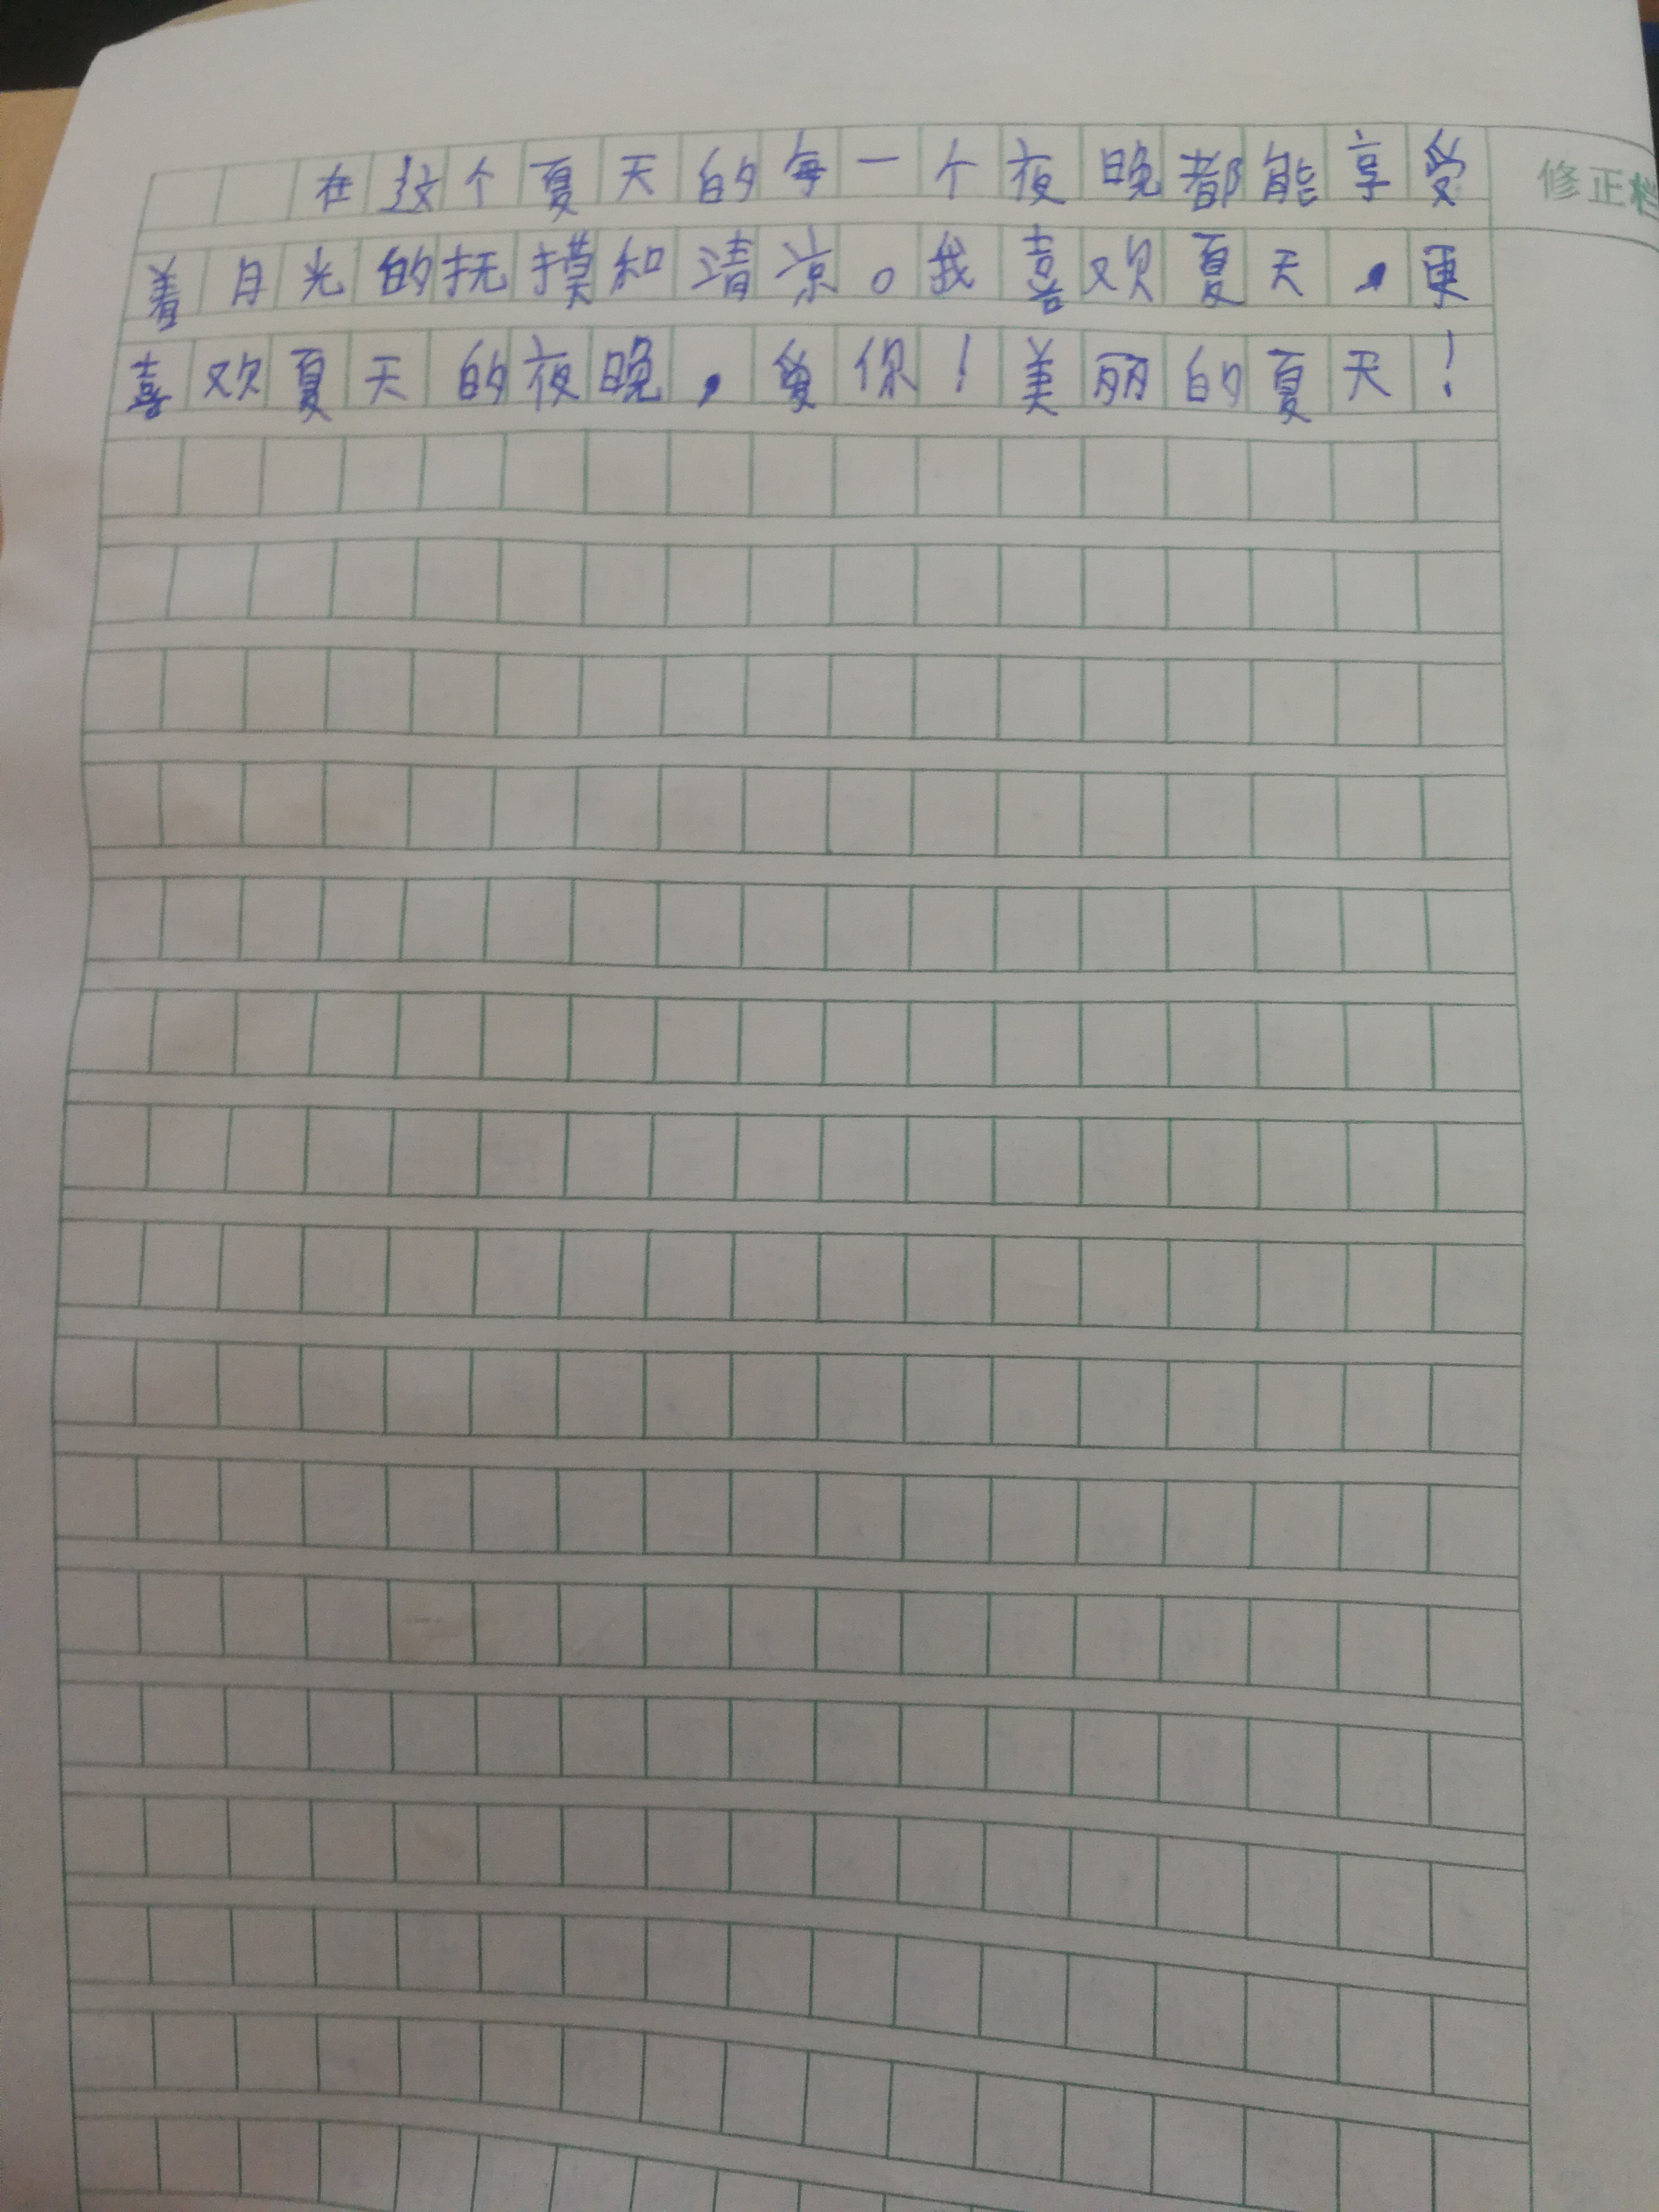 在这个夏天的每一个夜晚都能享受
修正栏
着月光的抚摸和清凉。我喜欢夏天,更
喜欢夏天的夜晚,爱你!美丽的夏天!